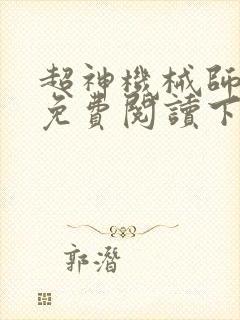 超神機械師
免費閱讀下
郭潛